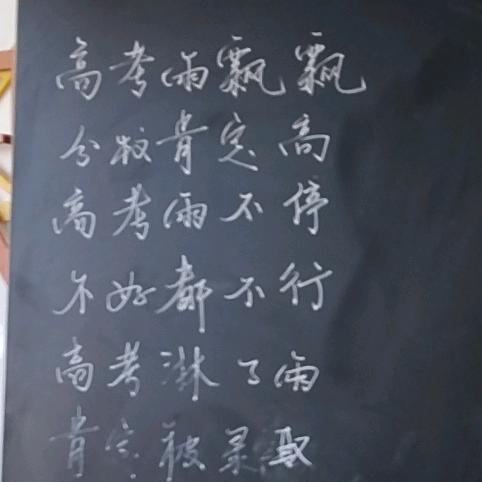 高考雨飘飘
分数肯定高
高考雨不停
不好都不行
高考淋了雨
肯定被录取